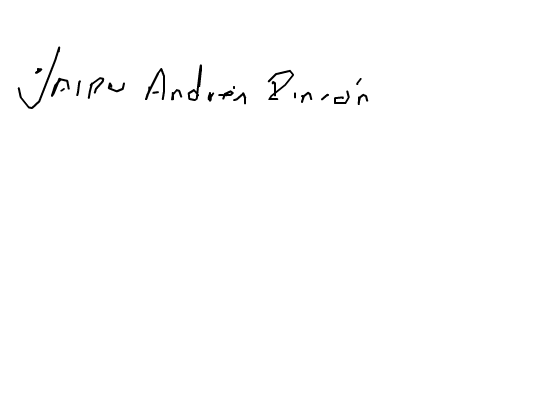 Jairo Andrés Rincón